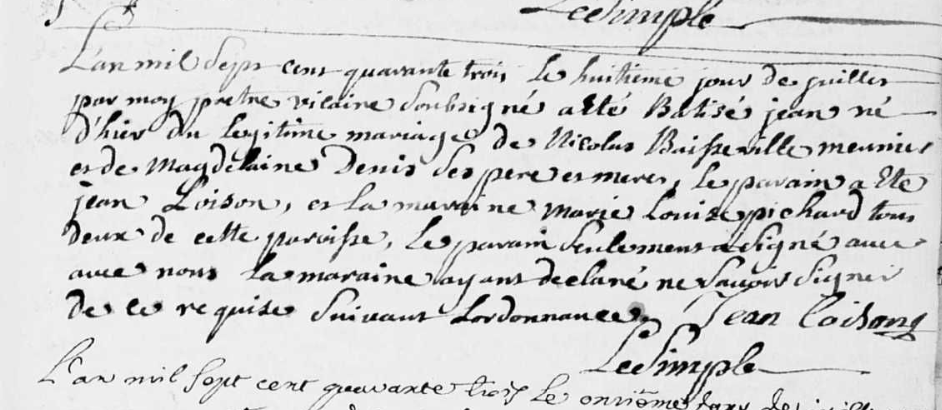 LeSimple
L'an mil sept cent quarante trois le huitieme jour de juillet
par moy pretre vicaire soubsigné a eté Batisé jean né
d'hier du legitime mariage de Nicolas Baisseville meunier
et de Magdelaine Denis ses pere et mere, le parain a ete
jean Loison, et la maraine marie louise pichard tous
deux de cette paroisse, le parain seulement a signé avec
avec nous la maraine ayant declaré ne savoir signer
de ce requise suivant Lordonnance. Jean Loison
LeSimple
L'an mil sept cent quarante trois le onzième jour de